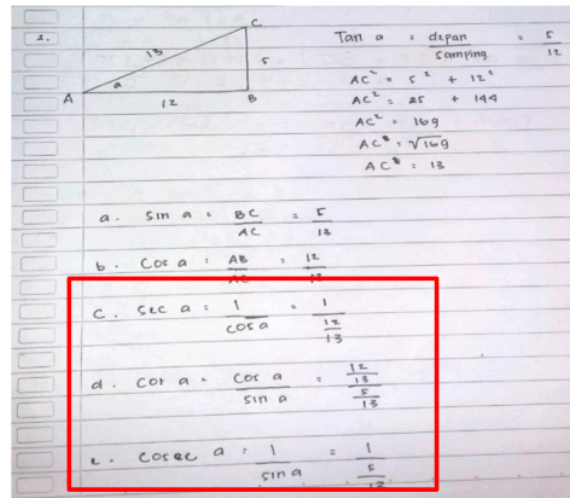 2.
C
13
5
a
A
12
B
Tan a = depan / samping = 5/12
AC² = 5² + 12²
AC² = 25 + 144
AC² = 169
AC = √169
AC = 13
a. Sin a = BC/AC = 5/13
b. Cos a = AB/AC = 12/13
c. Sec a = 1/cos a = 1/(12/13)
d. Cot a = Cos a/sin a = (12/13)/(5/13)
e. Cosec a = 1/sin a = 1/(5/13)